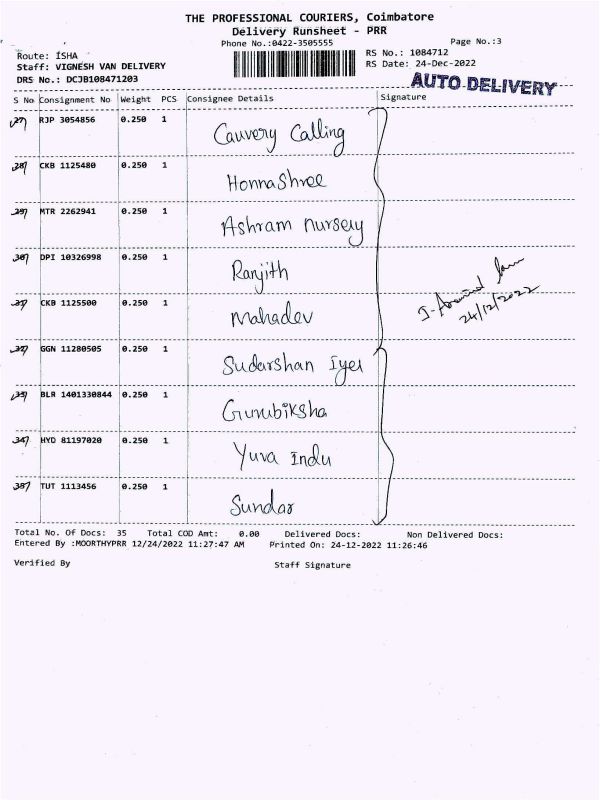 THE PROFESSIONAL COURIERS, Coimbatore
Delivery Runsheet - PRR
Phone No.:0422-3505555
Page No.:3
Route: ISHA
Staff: VIGNESH VAN DELIVERY
DRS No.: DCJB108471203
RS No.: 1084712
RS Date: 24-Dec-2022
AUTO DELIVERY
S No Consignment No Weight PCS Consignee Details Signature
27 RJP 3054856 0.250 1 Cauvery Calling
28 CKB 1125480 0.250 1 HonnaShree
29 MTR 2262941 0.250 1 Ashram nursery
30 DPI 10326998 0.250 1 Ranjith
31 CKB 1125500 0.250 1 Mahadev
24/12/2022
32 GGN 11280505 0.250 1 Sudarshan Iyer
33 BLR 1401330844 0.250 1 Gurubiksha
34 HYD 81197020 0.250 1 Yuva Indu
35 TUT 1113456 0.250 1 Sundar
Total No. Of Docs: 35 Total COD Amt: 0.00 Delivered Docs: Non Delivered Docs:
Entered By :MOORTHYPRR 12/24/2022 11:27:47 AM Printed On: 24-12-2022 11:26:46
Verified By Staff Signature